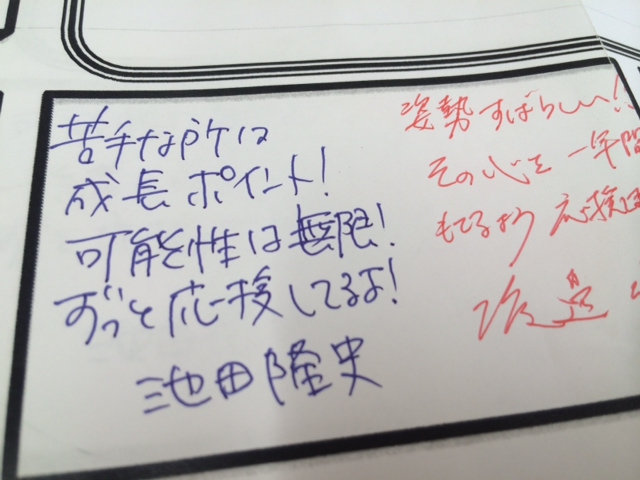 苦手な所は
成長ポイント!
可能性は無限!
ずっと応援してるよ!
池田隆史
姿勢すばらしい!
その心を一年間
もてるよう 応援
渡邉